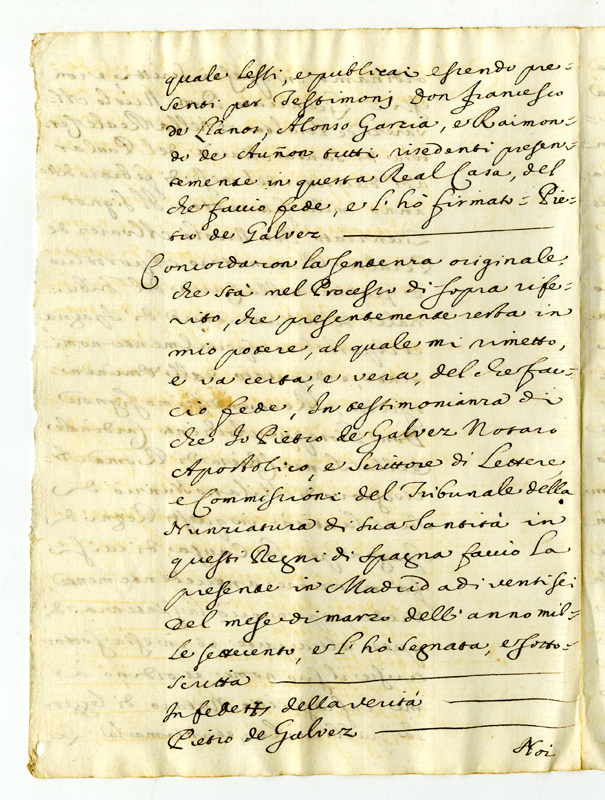 quale lessi, e publicai essendo pre=
senti per Testimonj Don francesco
de Llanos, Alonso Garcia, e Raimon=
do de Auñon tutti risedenti presen=
temente in questa Real Casa, del
che faccio fede, e l'hò firmato = Pie=
tro de Galvez
Concordaron la sentenza originale,
che stà nel Processo di sopra rife=
rito, che presentemente resta in
mio potere, al quale mi rimetto,
e va certa, e vera, del che fac=
cio fede, In testimonianza di
che Io Pietro de Galvez Notaro
Apostolico, e Scrittore di Lettere,
e Commissioni del Tribunale della
Nunziatura di sua Santità in
questi Regni di Spagna faccio la
presente in Madrid adi ventisei
del mese di marzo dell'anno mil=
le settecento, e l'hò segnata, e sotto=
scritta
In fede della verità
Pietro de Galvez
Noi